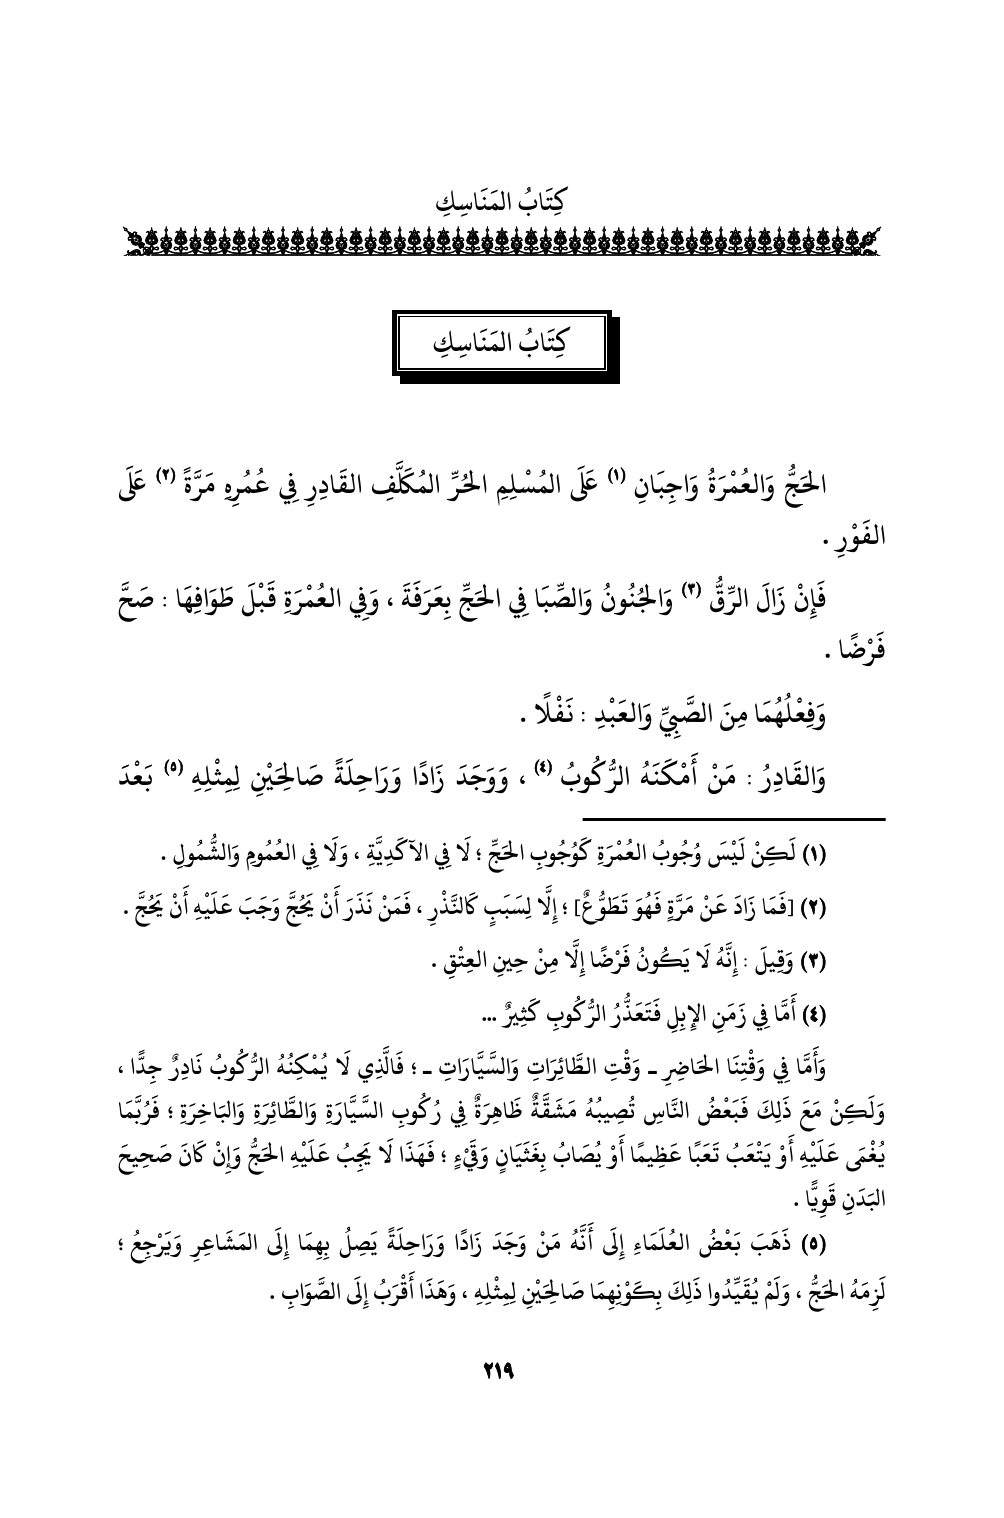 كِتَابُ المَنَاسِكِ
كِتَابُ المَنَاسِكِ
الحَجُّ وَالعُمْرَةُ وَاجِبَانِ (١) عَلَى المُسْلِمِ الحُرِّ المُكَلَّفِ القَادِرِ فِي عُمُرِهِ مَرَّةً (٢) عَلَى
الفَوْرِ .
فَإِنْ زَالَ الرِّقُّ (٣) وَالجُنُونُ وَالصِّبَا فِي الحَجِّ بِعَرَفَةَ ، وَفِي العُمْرَةِ قَبْلَ طَوَافِهَا : صَحَّ
فَرْضًا .
وَفِعْلُهُمَا مِنَ الصَّبِيِّ وَالعَبْدِ : نَفْلًا .
وَالقَادِرُ : مَنْ أَمْكَنَهُ الرُّكُوبُ (٤) ، وَوَجَدَ زَادًا وَرَاحِلَةً صَالِحَيْنِ لِمِثْلِهِ (٥) بَعْدَ
(١) لَكِنْ لَيْسَ وُجُوبُ العُمْرَةِ كَوُجُوبِ الحَجِّ ؛ لَا فِي الآكَدِيَّةِ ، وَلَا فِي العُمُومِ وَالشُّمُولِ .
(٢) [فَمَا زَادَ عَنْ مَرَّةٍ فَهُوَ تَطَوُّعٌ] ؛ إِلَّا لِسَبَبٍ كَالنَّذْرِ ، فَمَنْ نَذَرَ أَنْ يَحُجَّ وَجَبَ عَلَيْهِ أَنْ يَحُجَّ .
(٣) وَقِيلَ : إِنَّهُ لَا يَكُونُ فَرْضًا إِلَّا مِنْ حِينِ العِتْقِ .
(٤) أَمَّا فِي زَمَنِ الإِبِلِ فَتَعَذُّرُ الرُّكُوبِ كَثِيرٌ ...
وَأَمَّا فِي وَقْتِنَا الحَاضِرِ ـ وَقْتِ الطَّائِرَاتِ وَالسَّيَّارَاتِ ـ ؛ فَالَّذِي لَا يُمْكِنُهُ الرُّكُوبُ نَادِرٌ جِدًّا ،
وَلَكِنْ مَعَ ذَلِكَ فَبَعْضُ النَّاسِ تُصِيبُهُ مَشَقَّةٌ ظَاهِرَةٌ فِي رُكُوبِ السَّيَّارَةِ وَالطَّائِرَةِ وَالبَاخِرَةِ ؛ فَرُبَّمَا
يُغْمَى عَلَيْهِ أَوْ يَتْعَبُ تَعَبًا عَظِيمًا أَوْ يُصَابُ بِغَثَيَانٍ وَقَيْءٍ ؛ فَهَذَا لَا يَجِبُ عَلَيْهِ الحَجُّ وَإِنْ كَانَ صَحِيحَ
البَدَنِ قَوِيًّا .
(٥) ذَهَبَ بَعْضُ العُلَمَاءِ إِلَى أَنَّهُ مَنْ وَجَدَ زَادًا وَرَاحِلَةً يَصِلُ بِهِمَا إِلَى المَشَاعِرِ وَيَرْجِعُ ؛
لَزِمَهُ الحَجُّ ، وَلَمْ يُقَيِّدُوا ذَلِكَ بِكَوْنِهِمَا صَالِحَيْنِ لِمِثْلِهِ ، وَهَذَا أَقْرَبُ إِلَى الصَّوَابِ .
٢١٩